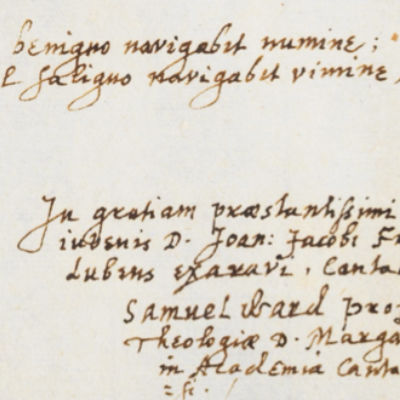 benigno navigabit numine;
saligno navigabit vimine,
In gratiam præstantissimi
iuvenis D. Joan: Jacobi Fr
lubens exaravi, Canta
Samuel Ward prof
Theologiæ D. Marga
in Academia Canta
=si.